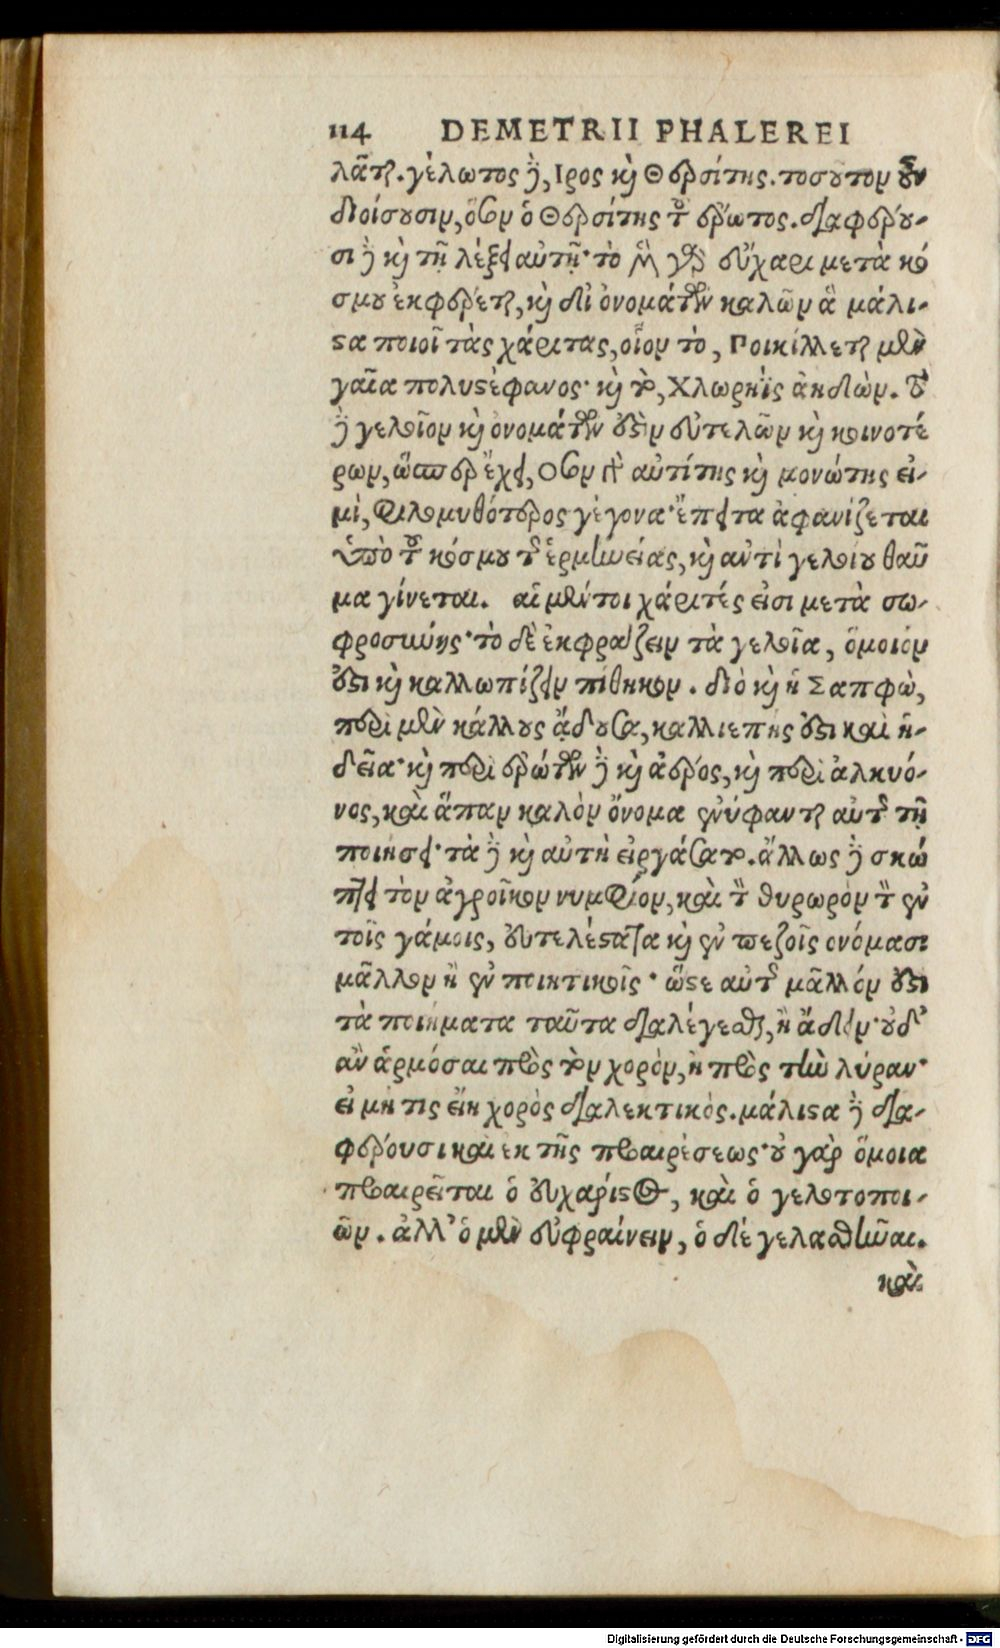 114 DEMETRII PHALEREI
λᾶται. γέλωτος δὲ, Ιρος καὶ Θερσίτης. τοσοῦτον οὖν
διοίσουσιν, ὅσον ὁ Θερσίτης τοῦ ἔρωτος. διαφέρου-
σι δὲ καὶ τῇ λέξει αὐτῇ· τὸ μὲν γὰρ εὔχαρι μετὰ κό
σμου ἐκφέρεται, καὶ δι ὀνομάτων καλῶν ἃ μάλι-
στα ποιοῖ τὰς χάριτας, οἷον τὸ, Ποικίλλεται μὲν
γαῖα πολυστέφανος· καὶ τὸ, Χλωρηῒς ἀηδὼν. τὸ
δὲ γελοῖον καὶ ὀνομάτων ἐστὶν εὐτελῶν καὶ κοινοτέ
ρων, ὥσπερ ἔχει, Οσον γὰρ αὐτίτης καὶ μονώτης εἰ-
μὶ, φιλομυθότερος γέγονα· ἔπειτα ἀφανίζεται
ὑπὸ τοῦ κόσμου τῆς ἑρμηνείας, καὶ αντὶ γελοίου θαῦ
μα γίνεται. αἱ μέντοι χάριτές εἰσι μετὰ σω-
φροσύνης· τὸ δὲ ἐκφράζειν τὰ γελοῖα, ὅμοιόν
ἐστι καὶ καλλωπίζειν πίθηκον. διὸ καὶ ἡ Σαπφὼ,
περὶ μὲν κάλλους ᾄδουσα, καλλιεπής ἐστι καὶ ἡ-
δεῖα· καὶ περὶ ἐρώτων δὲ καὶ ἀέρος, καὶ περὶ ἀλκυό-
νος, καὶ ἅπαν καλὸν ὄνομα ἐνύφανται αὐτῆς τῇ
ποιήσει· τὰ δὲ καὶ αὐτὴ εἰργάσατο. ἄλλως δὲ σκώ
πτει τὸν ἀγροῖκον νυμφίον, καὶ τὸν θυρωρὸν τὸν ἐν
τοῖς γάμοις, εὐτελέστατα καὶ ἐν πεζοῖς ονόμασι
μᾶλλον ἢ ἐν ποιητικοῖς· ὥστε αὐτῆς μᾶλλόν ἐστι
τὰ ποιήματα ταῦτα διαλέγεσθαι, ἢ ᾄδειν· οὐδ’
ἂν ἁρμόσαι πρὸς τὸν χορὸν, ἢ πρὸς τὴν λύραν·
εἰ μή τις εἴη χορὸς διαλεκτικὸς. μάλιστα δὲ δια-
φέρουσι καὶ εκ τῆς προαιρέσεως· οὐ γὰρ ὅμοια
προαιρεῖται ὁ εὐχάριστος, καὶ ὁ γελωτοποι-
ῶν. ἀλλ’ ὁ μὲν εὐφραίνειν, ὁ δέ γελασθῆναι.
καὶ
Digitalisierung gefördert durch die Deutsche Forschungsgemeinschaft - DFG